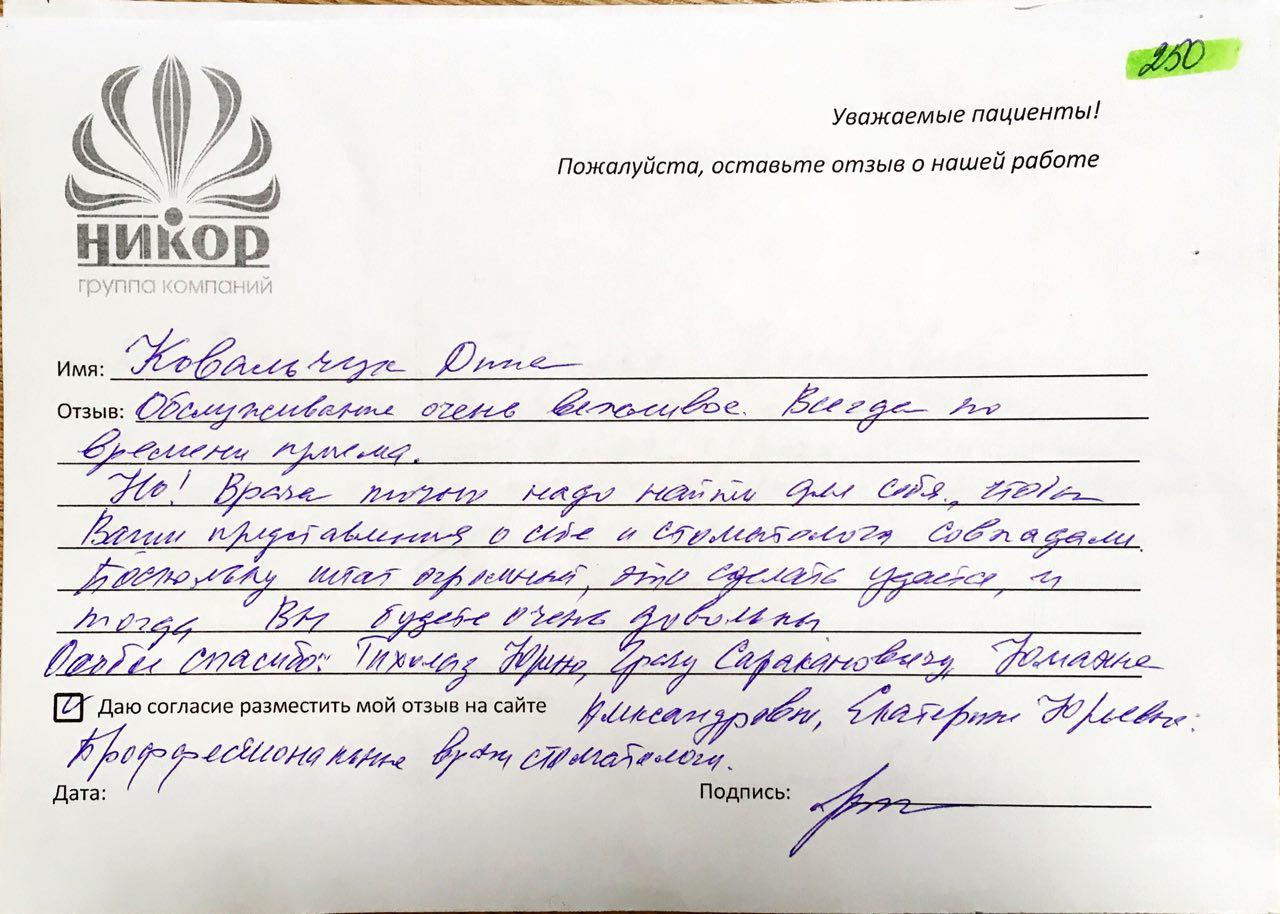 250
Уважаемые пациенты!
Пожалуйста, оставьте отзыв о нашей работе
НИКОР
группа компаний
Имя: Ковальчук
Отзыв: Обслуживание очень вежливое. Всегда по
времени приема.
Но! Врача точно надо найти для себя, чтобы
Ваши представления о себе и стоматолога совпадали.
Поскольку штат огромный, это сделать удастся, и
тогда Вы будете очень довольны
Особое спасибо: Тихолаз Юрию, Саракановичу,
Даю согласие разместить мой отзыв на сайте Александровне, Екатерине Юрьевне.
Проффесиональные врачи стоматологи.
Дата: Подпись: